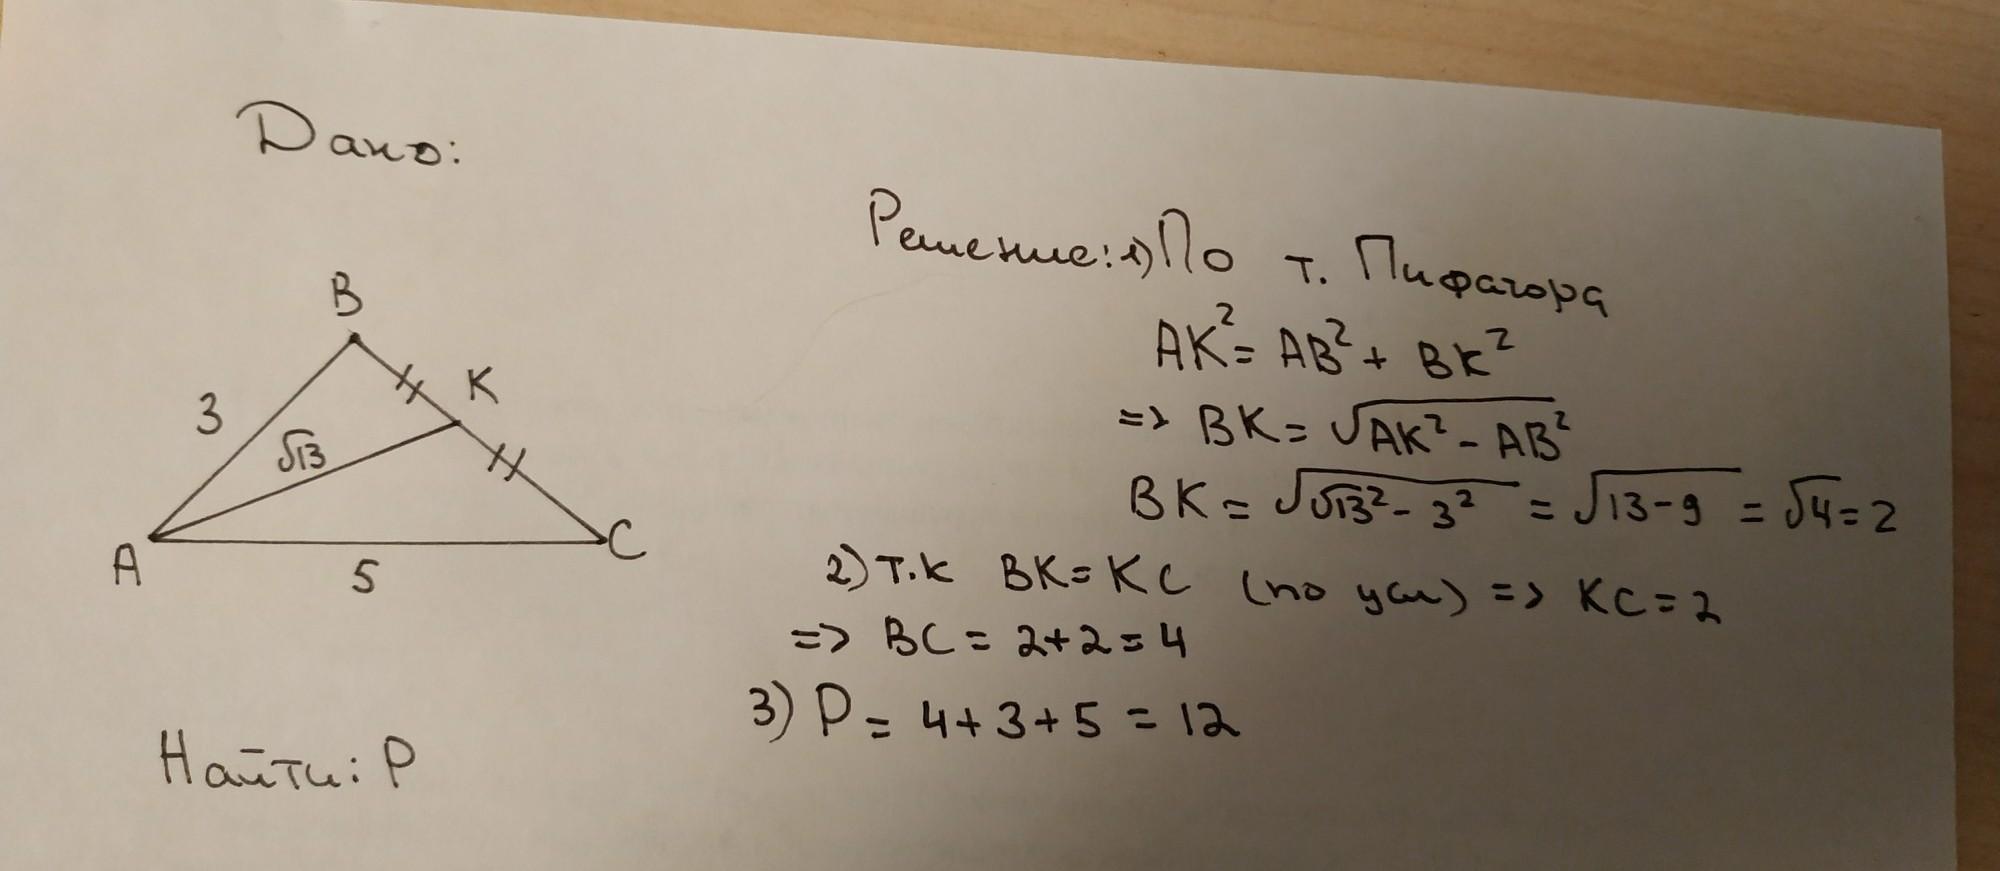 Дано:
B
K
3
√13
A
5
C
Найти: P
Решение: 1) По т. Пифагора
AK² = AB² + BK²
=> BK = √AK² - AB²
BK = √√13² - 3² = √13-9 = √4 = 2
2) т.к BK = KC (по усл) => KC = 2
=> BC = 2+2 = 4
3) P = 4+3+5 = 12